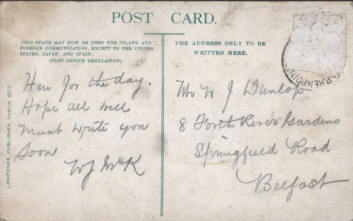 POST CARD.
THIS SPACE MAY NOW BE USED FOR INLAND AND
FOREIGN COMMUNICATION, EXCEPT TO THE UNITED
STATES, JAPAN, AND SPAIN.
(POST OFFICE REGULATION).
THE ADDRESS ONLY TO BE
WRITTEN HERE.
Here for the day.
Hope all well
must write you
soon
WJ McK
Mr W J Dunlop
8 Forth River Gardens
Springfield Road
Belfast
LAWRENCE, PUBLISHER, DUBLIN